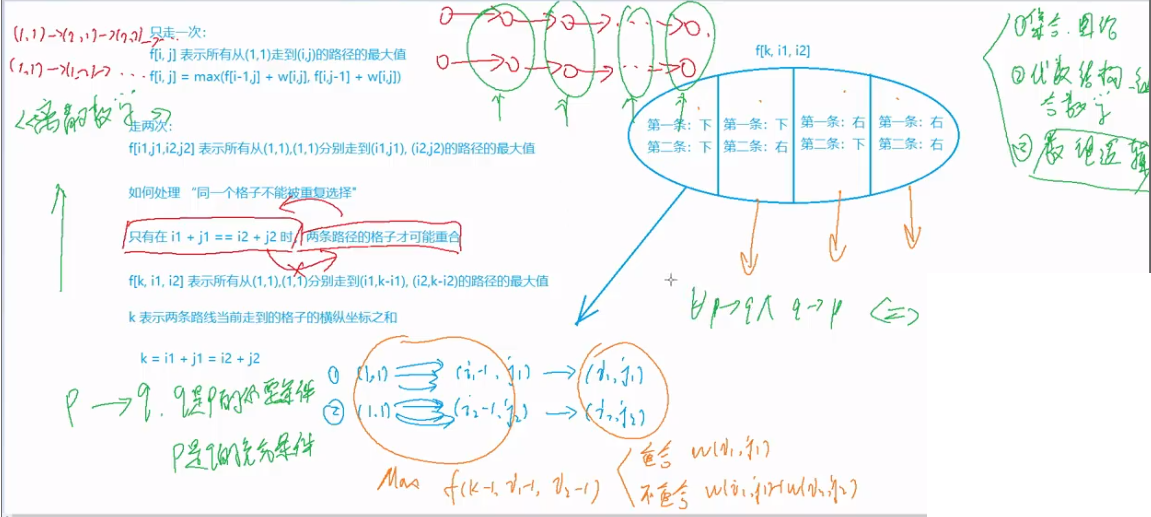 只走一次:
f[i, j] 表示所有从(1,1)走到(i,j)的路径的最大值
f[i,j] = max(f[i-1,j] + w[i,j], f[i,j-1] + w[i,j])
(1,1)→(2,1)→(2,2)→..
(1,1)→(1,2)→ ...
<<离散的数学>>
走两次:
f[i1,j1,i2,j2] 表示所有从(1,1),(1,1)分别走到(i1,j1), (i2,j2)的路径的最大值
如何处理 “同一个格子不能被重复选择"
只有在 i1 + j1 == i2 + j2 时, 两条路径的格子才可能重合
f[k, i1, i2] 表示所有从(1,1),(1,1)分别走到(i1,k-i1), (i2,k-i2)的路径的最大值
k 表示两条路线当前走到的格子的横纵坐标之和
k = i1 + j1 = i2 + j2
P → q. q是P的必要条件
P是q的充分条件
f[k, i1, i2]
第一条: 下 第一条: 下 第一条: 右 第一条: 右
第二条: 下 第二条: 右 第二条: 下 第二条: 右
① 集合.图论
② 代数结构_组
合数学
③ 数理逻辑
p→q∧ q→p <=>
① (1,1) (i1-1,j1) → (i1,j1)
② (1,1) (i2-1,j2) → (i2,j2)
Max f(k-1, i1-1, i2-1)
重合 w(i1,j1)
不重合 w(i1,j1)+w(i2,j2)